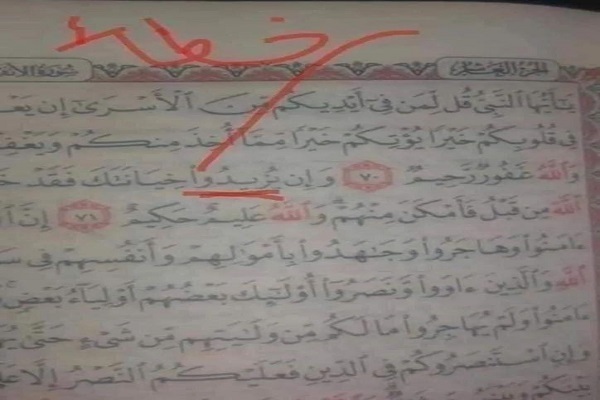 خطأ
سورة الانف
الجزء العاشر
يَٰٓأَيُّهَا ٱلنَّبِىُّ قُل لِّمَن فِىٓ أَيْدِيكُم مِّنَ ٱلْأَسْرَىٰٓ إِن يَعْ
فِى قُلُوبِكُمْ خَيْرًا يُؤْتِكُمْ خَيْرًا مِّمَّآ أُخِذَ مِنكُمْ وَيَغْفِرْ
وَٱللَّهُ غَفُورٌ رَّحِيمٌ ٧٠ وَإِن تُرِيدُوا۟ خِيَانَتَكَ فَقَدْ خَ
ٱللَّهَ مِن قَبْلُ فَأَمْكَنَ مِنْهُمْ وَٱللَّهُ عَلِيمٌ حَكِيمٌ ٧١ إِنَّ ٱ
ءَامَنُوا۟ وَهَاجَرُوا۟ وَجَٰهَدُوا۟ بِأَمْوَٰلِهِمْ وَأَنفُسِهِمْ فِى سَ
ٱللَّهِ وَٱلَّذِينَ ءَاوَوا۟ وَّنَصَرُوٓا۟ أُو۟لَٰٓئِكَ بَعْضُهُمْ أَوْلِيَآءُ بَعْضٍ
ءَامَنُوا۟ وَلَمْ يُهَاجِرُوا۟ مَا لَكُم مِّن وَلَٰيَتِهِم مِّن شَىْءٍ حَتَّىٰ يُهَ
وَإِنِ ٱسْتَنصَرُوكُمْ فِى ٱلدِّينِ فَعَلَيْكُمُ ٱلنَّصْرُ إِلَّا عَلَ
بَيْنَكُمْ